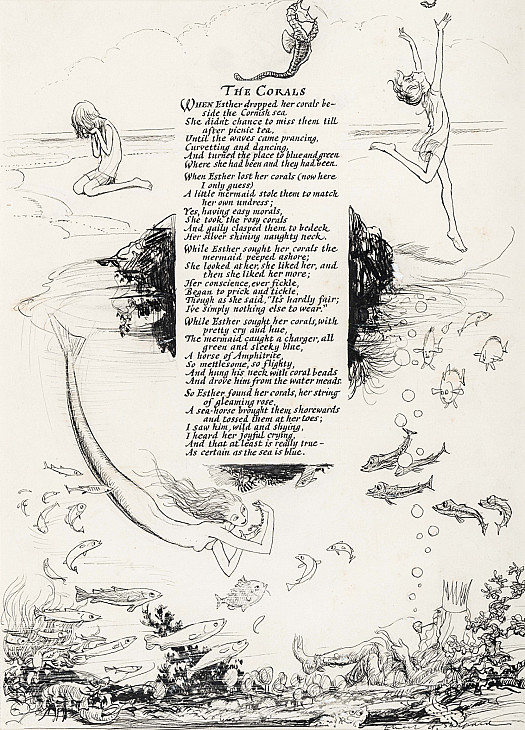 THE CORALS
WHEN Esther dropped her corals be-
side the Cornish sea
She didn't chance to miss them till
after picnic tea,
Until the waves came prancing,
Curvetting and dancing,
And turned the place to blue and green
Where she had been and they had been.
When Esther lost her corals (now here
I only guess)
A little mermaid stole them to match
her own undress;
Yes, having easy morals,
She took the rosy corals
And gaily clasped them to bedeck
Her silver shining naughty neck.
While Esther sought her corals the
mermaid peeped ashore;
She looked at her, she liked her, and
then she liked her more;
Her conscience, ever fickle,
Began to prick and tickle,
Though as she said, "It's hardly fair;
I've simply nothing else to wear."
While Esther sought her corals, with
pretty cry and hue,
The mermaid caught a charger, all
green and sleeky blue,
A horse of Amphitrite,
So mettlesome, so flighty,
And hung his neck with coral beads
And drove him from the water meads.
So Esther found her corals, her string
of gleaming rose,
A sea-horse brought them shorewards
and tossed them at her toes;
I saw him, wild and shying,
I heard her joyful crying,
And that at least is really true –
As certain as the sea is blue.